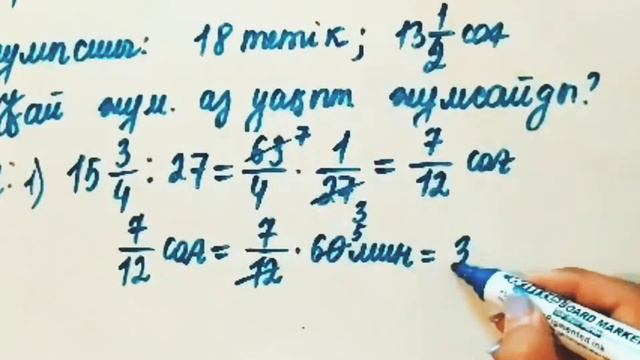 жұмысшы: 18 тетік; 13 1/2 сағ
Қай жұм. аз уақыт жұмсайды?
: 1) 15 3/4 : 27 = 63/4 7 · 1/27 = 7/12 сағ
7/12 сағ = 7/12 · 60 5 мин = 3
BOARD MARKER